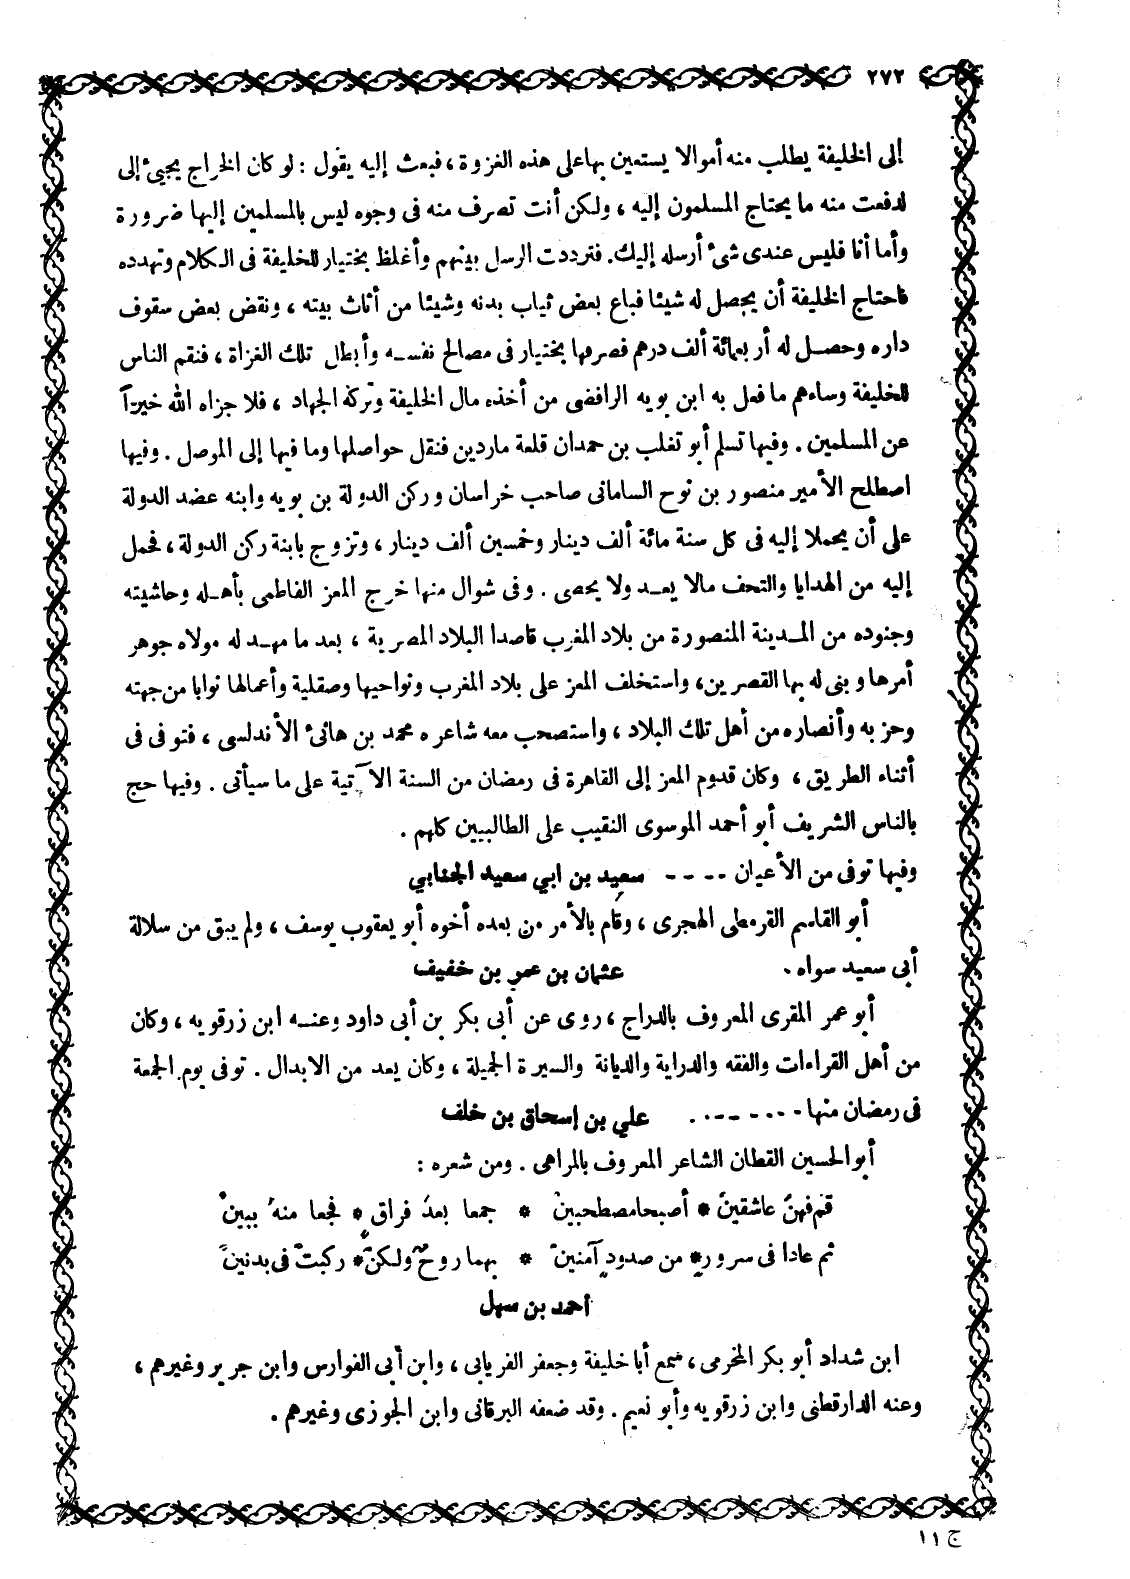 ٢٧٢
إلى الخليفة يطلب منه أموالا يستعين بها على هذه الغزوة ، فبعث إليه يقول : لو كان الخراج يجيئ إلى
لدفعت منه ما يحتاج المسلمون إليه ، ولكن أنت تصرف منه فى وجوه ليس بالمسلمين إليها ضرورة
وأما أنا فليس عندى شئ أرسله إليك. فترددت الرسل بينهم وأغلظ بختيار للخليفة فى الكلام وتهدده
فاحتاج الخليفة أن يحصل له شيئا فباع بعض ثياب بدنه وشيئا من أثاث بيته ، ونقض بعض سقوف
داره وحصل له أربعمائة ألف درهم فصرفها بختيار فى مصالح نفسه وأبطل تلك الغزاة ، فنقم الناس
للخليفة وساءهم ما فعل به ابن بويه الرافضى من أخذه مال الخليفة وتركه الجهاد ، فلا جزاه الله خيراً
عن المسلمين . وفيها تسلم أبو تغلب بن حمدان قلعة ماردين فنقل حواصلها وما فيها إلى الموصل . وفيها
اصطلح الأمير منصور بن نوح السامانى صاحب خراسان وركن الدولة بن بويه وابنه عضد الدولة
على أن يحملا إليه فى كل سنة مائة ألف دينار وخمسين ألف دينار ، وتزوج بابنة ركن الدولة ، فحمل
إليه من الهدايا والتحف مالا يعد ولا يحصى . وفى شوال منها خرج المعز الفاطمى بأهله وحاشيته
وجنوده من المدينة المنصورة من بلاد المغرب قاصدا البلاد المصرية ، بعد ما مهد له مولاه جوهر
أمرها وبنى له بها القصرين، واستخلف المعز على بلاد المغرب ونواحيها وصقلية وأعمالها نوابا من جهته
وحزبه وأنصاره من أهل تلك البلاد ، واستصحب معه شاعره محمد بن هانئ الأندلسى ، فتوفى فى
أثناء الطريق ، وكان قدوم المعز إلى القاهرة فى رمضان من السنة الآتية على ما سيأتى . وفيها حج
بالناس الشريف أبو أحمد الموسوى النقيب على الطالبيين كلهم .
وفيها توفى من الأعيان ---- سعيد بن ابي سعيد الجنابي
أبو القاسم القرمطى الهجرى ، وقام بالأمر من بعده أخوه أبو يعقوب يوسف ، ولم يبق من سلالة
أبى سعيد سواه . عثمان بن عمر بن خفيف
أبو عمر المقرى المعروف بالدراج ، روى عن أبى بكر بن أبى داود وعنه ابن زرقويه ، وكان
من أهل القراءات والفقه والدراية والديانة والسيرة الجميلة ، وكان يعد من الابدال . توفى يوم الجمعة
فى رمضان منها ------ . علي بن إسحاق بن خلف
أبو الحسين القطان الشاعر المعروف بالمراهى . ومن شعره :
قم فهنّ عاشقينْ * أصبحا مصطحبينْ * جمعا بعدَ فراقٍ * فجعا منهُ ببينْ
ثم عادا فى سرورٍ * من صدودٍ آمنينْ * بهما روحٌ ولكنْ * ركبتْ فى بدنينْ
أحمد بن سهل
ابن شداد أبو بكر المخرمى ، سمع أبا خليفة وجعفر الفريابى ، وابن أبى الفوارس وابن جرير وغيرهم ،
وعنه الدارقطنى وابن زرقويه وأبو نعيم . وقد ضعفه البرقانى وابن الجوزى وغيرهم .
ج ١١